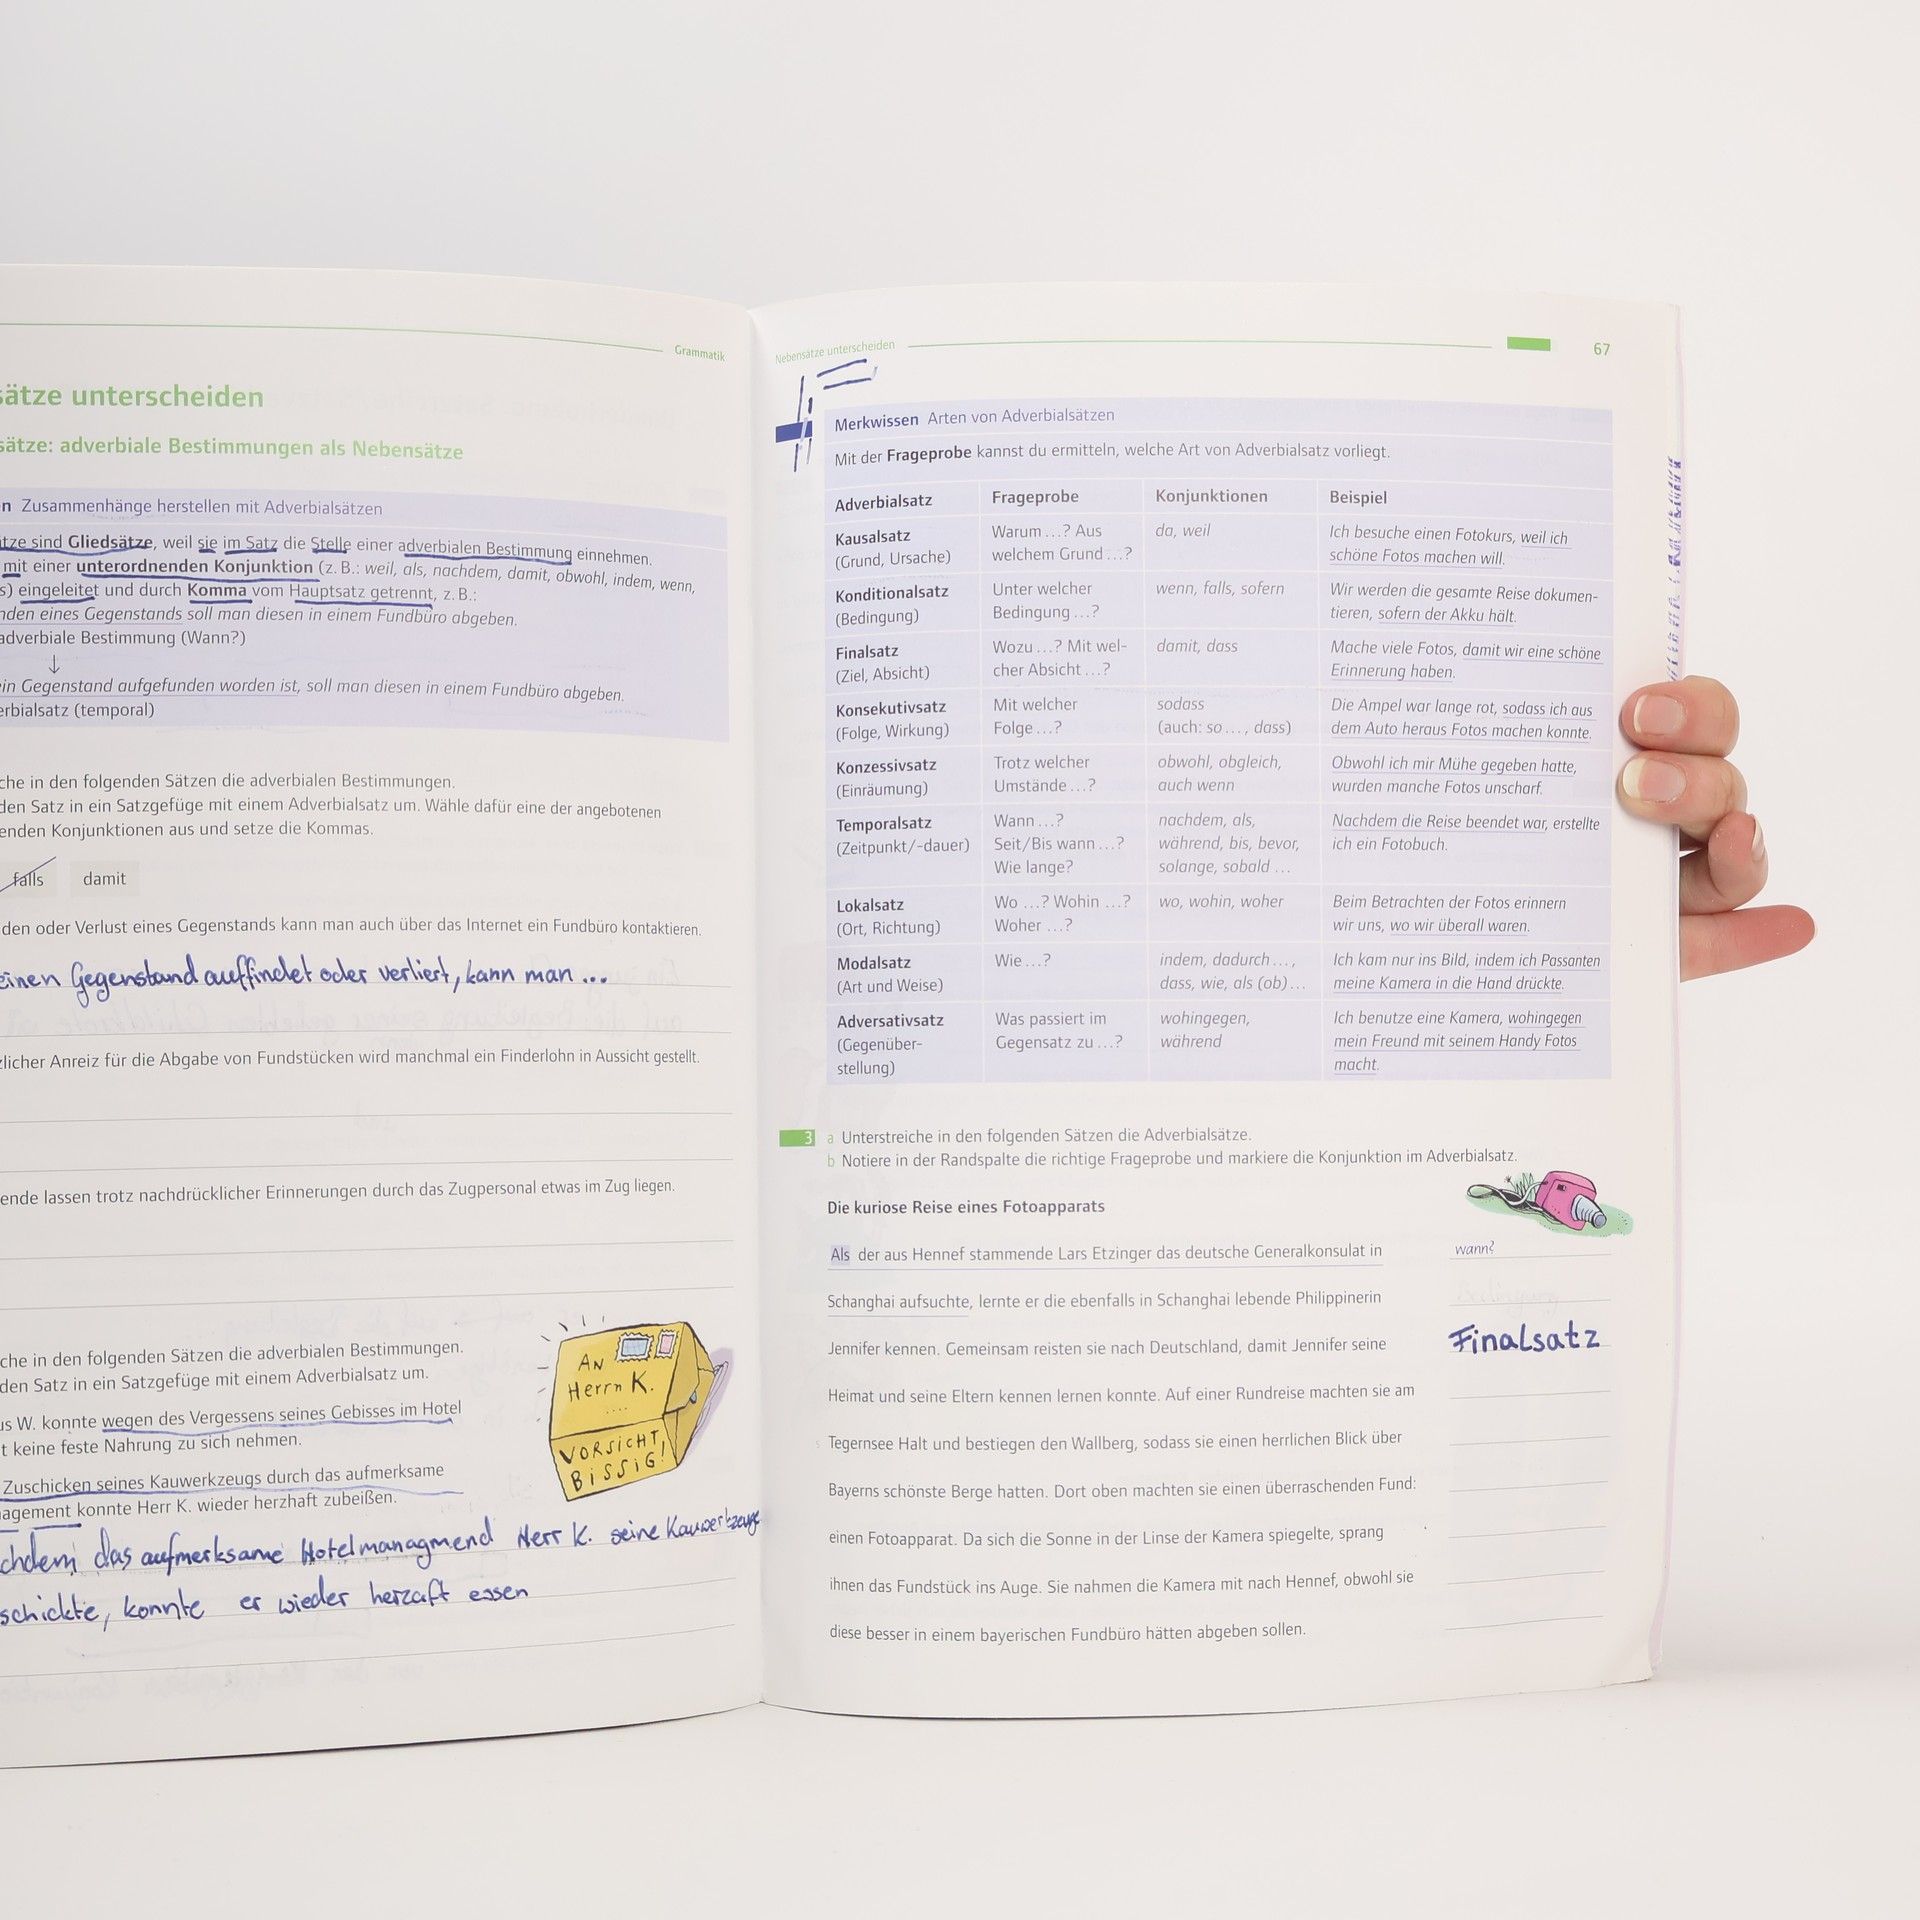 Grammatik
sätze unterscheiden
sätze: adverbiale Bestimmungen als Nebensätze
n Zusammenhänge herstellen mit Adverbialsätzen
tze sind Gliedsätze, weil sie im Satz die Stelle einer adverbialen Bestimmung einnehmen.
mit einer unterordnenden Konjunktion (z. B.: weil, als, nachdem, damit, obwohl, indem, wenn,
s) eingeleitet und durch Komma vom Hauptsatz getrennt, z. B.:
nden eines Gegenstands soll man diesen in einem Fundbüro abgeben.
adverbiale Bestimmung (Wann?)
↓
ein Gegenstand aufgefunden worden ist, soll man diesen in einem Fundbüro abgeben.
erbialsatz (temporal)
che in den folgenden Sätzen die adverbialen Bestimmungen.
den Satz in ein Satzgefüge mit einem Adverbialsatz um. Wähle dafür eine der angebotenen
enden Konjunktionen aus und setze die Kommas.
falls damit
den oder Verlust eines Gegenstands kann man auch über das Internet ein Fundbüro kontaktieren.
einen Gegenstand auffindet oder verliert, kann man ...
zlicher Anreiz für die Abgabe von Fundstücken wird manchmal ein Finderlohn in Aussicht gestellt.
ende lassen trotz nachdrücklicher Erinnerungen durch das Zugpersonal etwas im Zug liegen.
che in den folgenden Sätzen die adverbialen Bestimmungen.
den Satz in ein Satzgefüge mit einem Adverbialsatz um.
us W. konnte wegen des Vergessens seines Gebisses im Hotel
t keine feste Nahrung zu sich nehmen.
Zuschicken seines Kauwerkzeugs durch das aufmerksame
agement konnte Herr K. wieder herzhaft zubeißen.
AN
Herrn K.
....
VORSICHT,
BISSIG!
chdem das aufmerksame Hotelmanagmend Herr K. seine Kauwerkzeuge
schickte, konnte er wieder herzaft essen
Nebensätze unterscheiden
67
Merkwissen Arten von Adverbialsätzen
Mit der Frageprobe kannst du ermitteln, welche Art von Adverbialsatz vorliegt.
Adverbialsatz Frageprobe Konjunktionen Beispiel
Kausalsatz Warum ...? Aus da, weil Ich besuche einen Fotokurs, weil ich
(Grund, Ursache) welchem Grund ...? schöne Fotos machen will.
Konditionalsatz Unter welcher wenn, falls, sofern Wir werden die gesamte Reise dokumen-
(Bedingung) Bedingung ...? tieren, sofern der Akku hält.
Finalsatz Wozu ...? Mit wel- damit, dass Mache viele Fotos, damit wir eine schöne
(Ziel, Absicht) cher Absicht ...? Erinnerung haben.
Konsekutivsatz Mit welcher sodass Die Ampel war lange rot, sodass ich aus
(Folge, Wirkung) Folge ...? (auch: so ..., dass) dem Auto heraus Fotos machen konnte.
Konzessivsatz Trotz welcher obwohl, obgleich, Obwohl ich mir Mühe gegeben hatte,
(Einräumung) Umstände ...? auch wenn wurden manche Fotos unscharf.
Temporalsatz Wann ...? nachdem, als, Nachdem die Reise beendet war, erstellte
(Zeitpunkt/-dauer) Seit/Bis wann ...? während, bis, bevor, ich ein Fotobuch.
Wie lange? solange, sobald ...
Lokalsatz Wo ...? Wohin ...? wo, wohin, woher Beim Betrachten der Fotos erinnern
(Ort, Richtung) Woher ...? wir uns, wo wir überall waren.
Modalsatz Wie ...? indem, dadurch ..., Ich kam nur ins Bild, indem ich Passanten
(Art und Weise) dass, wie, als (ob) ... meine Kamera in die Hand drückte.
Adversativsatz Was passiert im wohingegen, Ich benutze eine Kamera, wohingegen
(Gegenüber- Gegensatz zu ...? während mein Freund mit seinem Handy Fotos
stellung) macht.
3 a Unterstreiche in den folgenden Sätzen die Adverbialsätze.
b Notiere in der Randspalte die richtige Frageprobe und markiere die Konjunktion im Adverbialsatz.
Die kuriose Reise eines Fotoapparats
Als der aus Hennef stammende Lars Etzinger das deutsche Generalkonsulat in wann?
Schanghai aufsuchte, lernte er die ebenfalls in Schanghai lebende Philippinerin
Jennifer kennen. Gemeinsam reisten sie nach Deutschland, damit Jennifer seine Finalsatz
Heimat und seine Eltern kennen lernen konnte. Auf einer Rundreise machten sie am
5 Tegernsee Halt und bestiegen den Wallberg, sodass sie einen herrlichen Blick über
Bayerns schönste Berge hatten. Dort oben machten sie einen überraschenden Fund:
einen Fotoapparat. Da sich die Sonne in der Linse der Kamera spiegelte, sprang
ihnen das Fundstück ins Auge. Sie nahmen die Kamera mit nach Hennef, obwohl sie
diese besser in einem bayerischen Fundbüro hätten abgeben sollen.